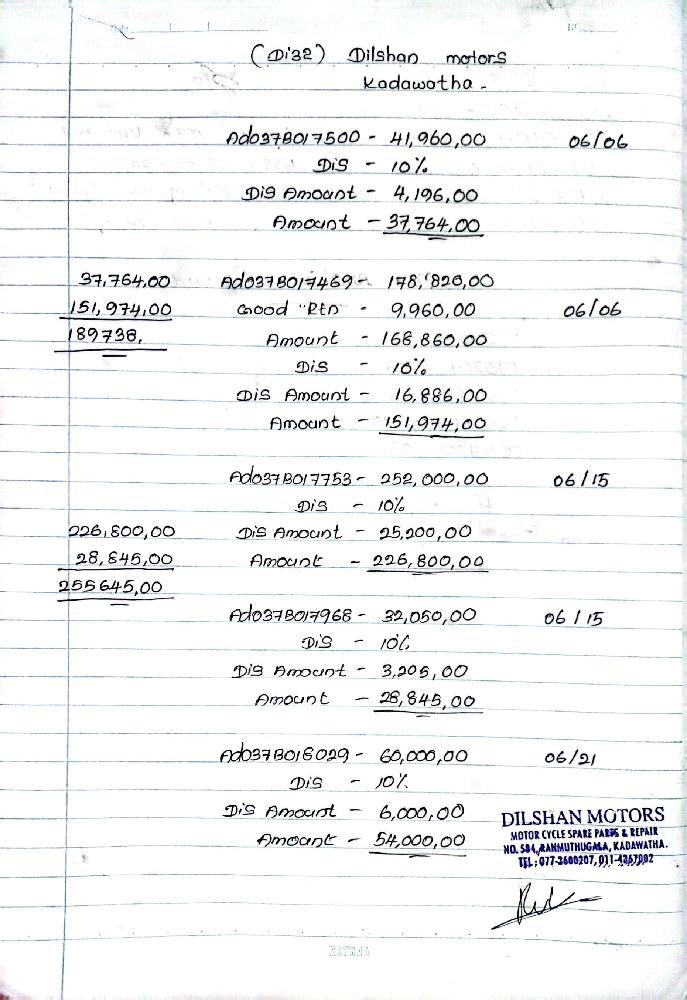 (Di32) Dilshan motors
Kadawatha -
Ad037B017500 - 41,960,00 06/06
Dis - 10%
Dis Amount - 4,196,00
Amount - 37,764.00
37,764.00 Ad037B017469 - 178,'820,00
151,974,00 Good "Rtn - 9,960,00 06/06
189738, Amount - 168,860,00
Dis - 10%
Dis Amount - 16,886,00
Amount - 151,974,00
Ad037B017753 - 252,000,00 06/15
Dis - 10%
226,800,00 Dis Amount - 25,200,00
28,845,00 Amount - 226,800,00
255645,00
Ad037B017968 - 32,050,00 06/15
Dis - 10%
Dis Amount - 3,205,00
Amount - 28,845,00
Ad037B018029 - 60,000,00 06/21
Dis - 10%
Dis Amount - 6,000,00
Amount - 54,000,00
DILSHAN MOTORS
MOTOR CYCLE SPARE PARTS & REPAIR
NO. 584, RANMUTHUGALA, KADAWATHA.
TEL: 077-2600207, 011-4267002